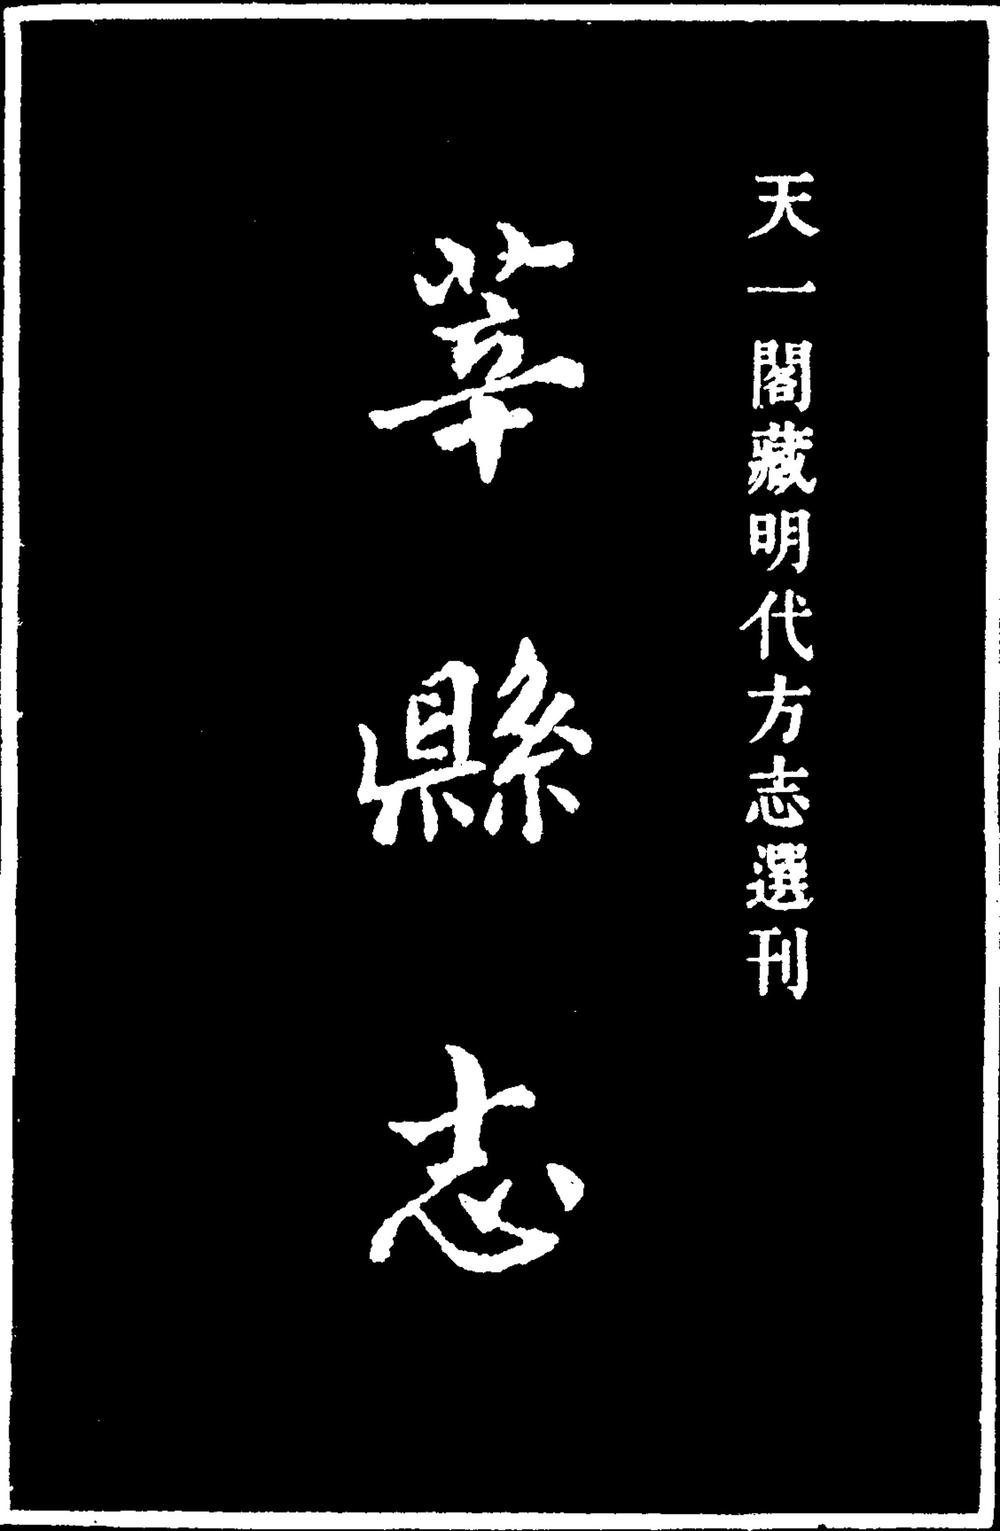 天一閣藏明代方志選刊
莘縣志